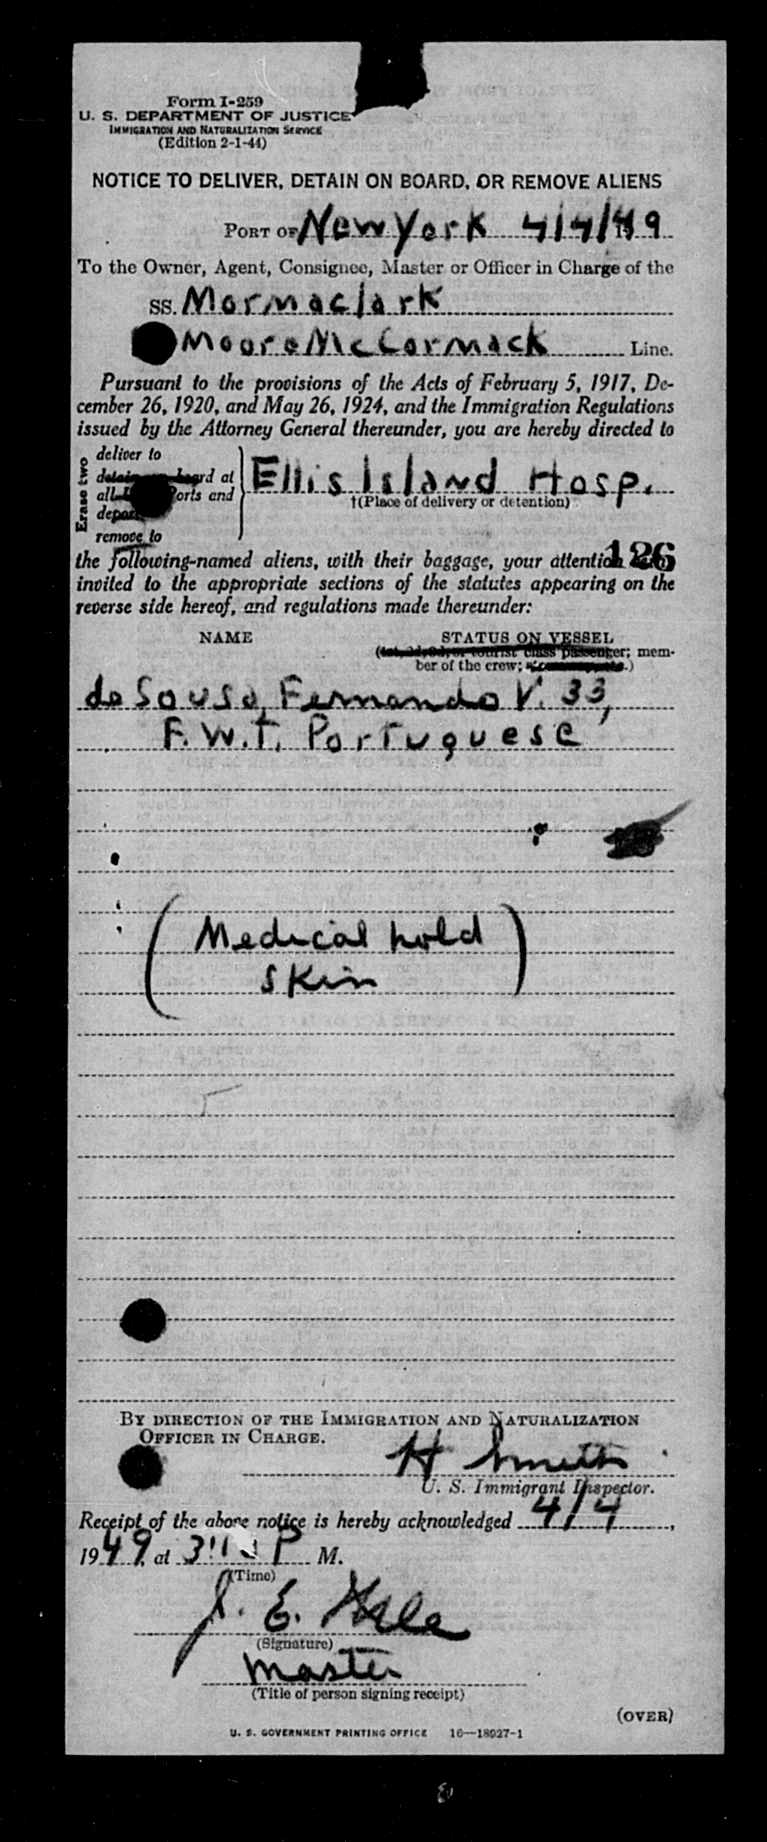 Form I-259
U. S. DEPARTMENT OF JUSTICE
IMMIGRATION AND NATURALIZATION SERVICE
(Edition 2-1-44)
NOTICE TO DELIVER, DETAIN ON BOARD, OR REMOVE ALIENS
PORT OF New York 4/4/49
To the Owner, Agent, Consignee, Master or Officer in Charge of the
SS. Mormaclark
Moore McCormack Line.
Pursuant to the provisions of the Acts of February 5, 1917, De-
cember 26, 1920, and May 26, 1924, and the Immigration Regulations
issued by the Attorney General thereunder, you are hereby directed to
Erase two
deliver to
detain on board at
all ports and
remove to
Ellis Island Hosp.
†(Place of delivery or detention)
126
the following-named aliens, with their baggage, your attention
invited to the appropriate sections of the statutes appearing on the
reverse side hereof, and regulations made thereunder:
NAME STATUS ON VESSEL
(1st, 2d, 3d, or tourist class passenger; mem-
ber of the crew;
de Sousa, Fernando V. 33,
F.W.T. Portuguese
(Medical hold
skin)
BY DIRECTION OF THE IMMIGRATION AND NATURALIZATION
OFFICER IN CHARGE.
H Smith
U. S. Immigrant Inspector.
Receipt of the above notice is hereby acknowledged 4/4,
1949, at P M.
(Time)
J. E.
(Signature)
Master
(Title of person signing receipt)
(OVER)
U. S. GOVERNMENT PRINTING OFFICE 16—18927-1